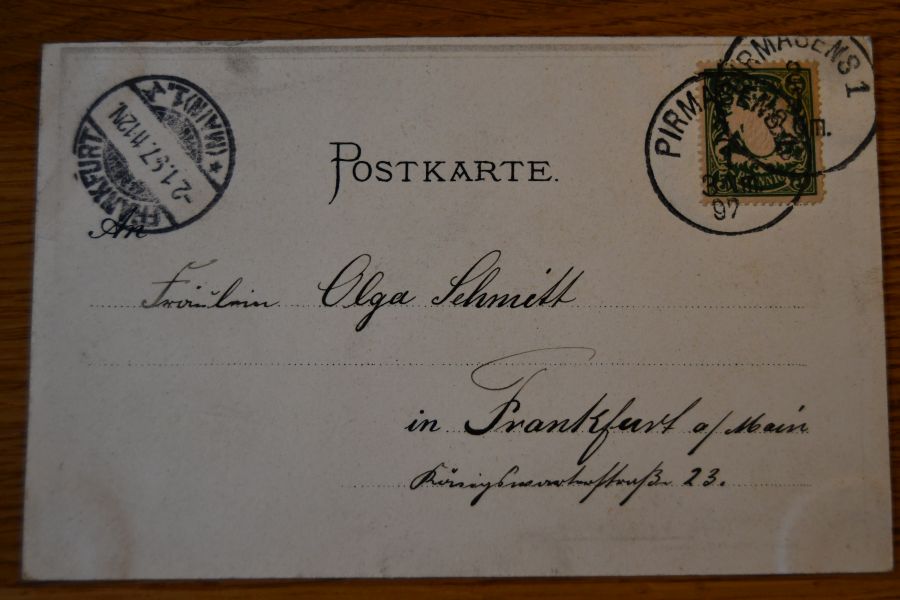 FRANKFURT (MAIN) 1.
-2.1.97.11-12N.
POSTKARTE.
PIRMASENS 1
PIRMA
97
An
Fräulein Olga Schmitt
in Frankfurt a/Main
Königswarterstraße 23.